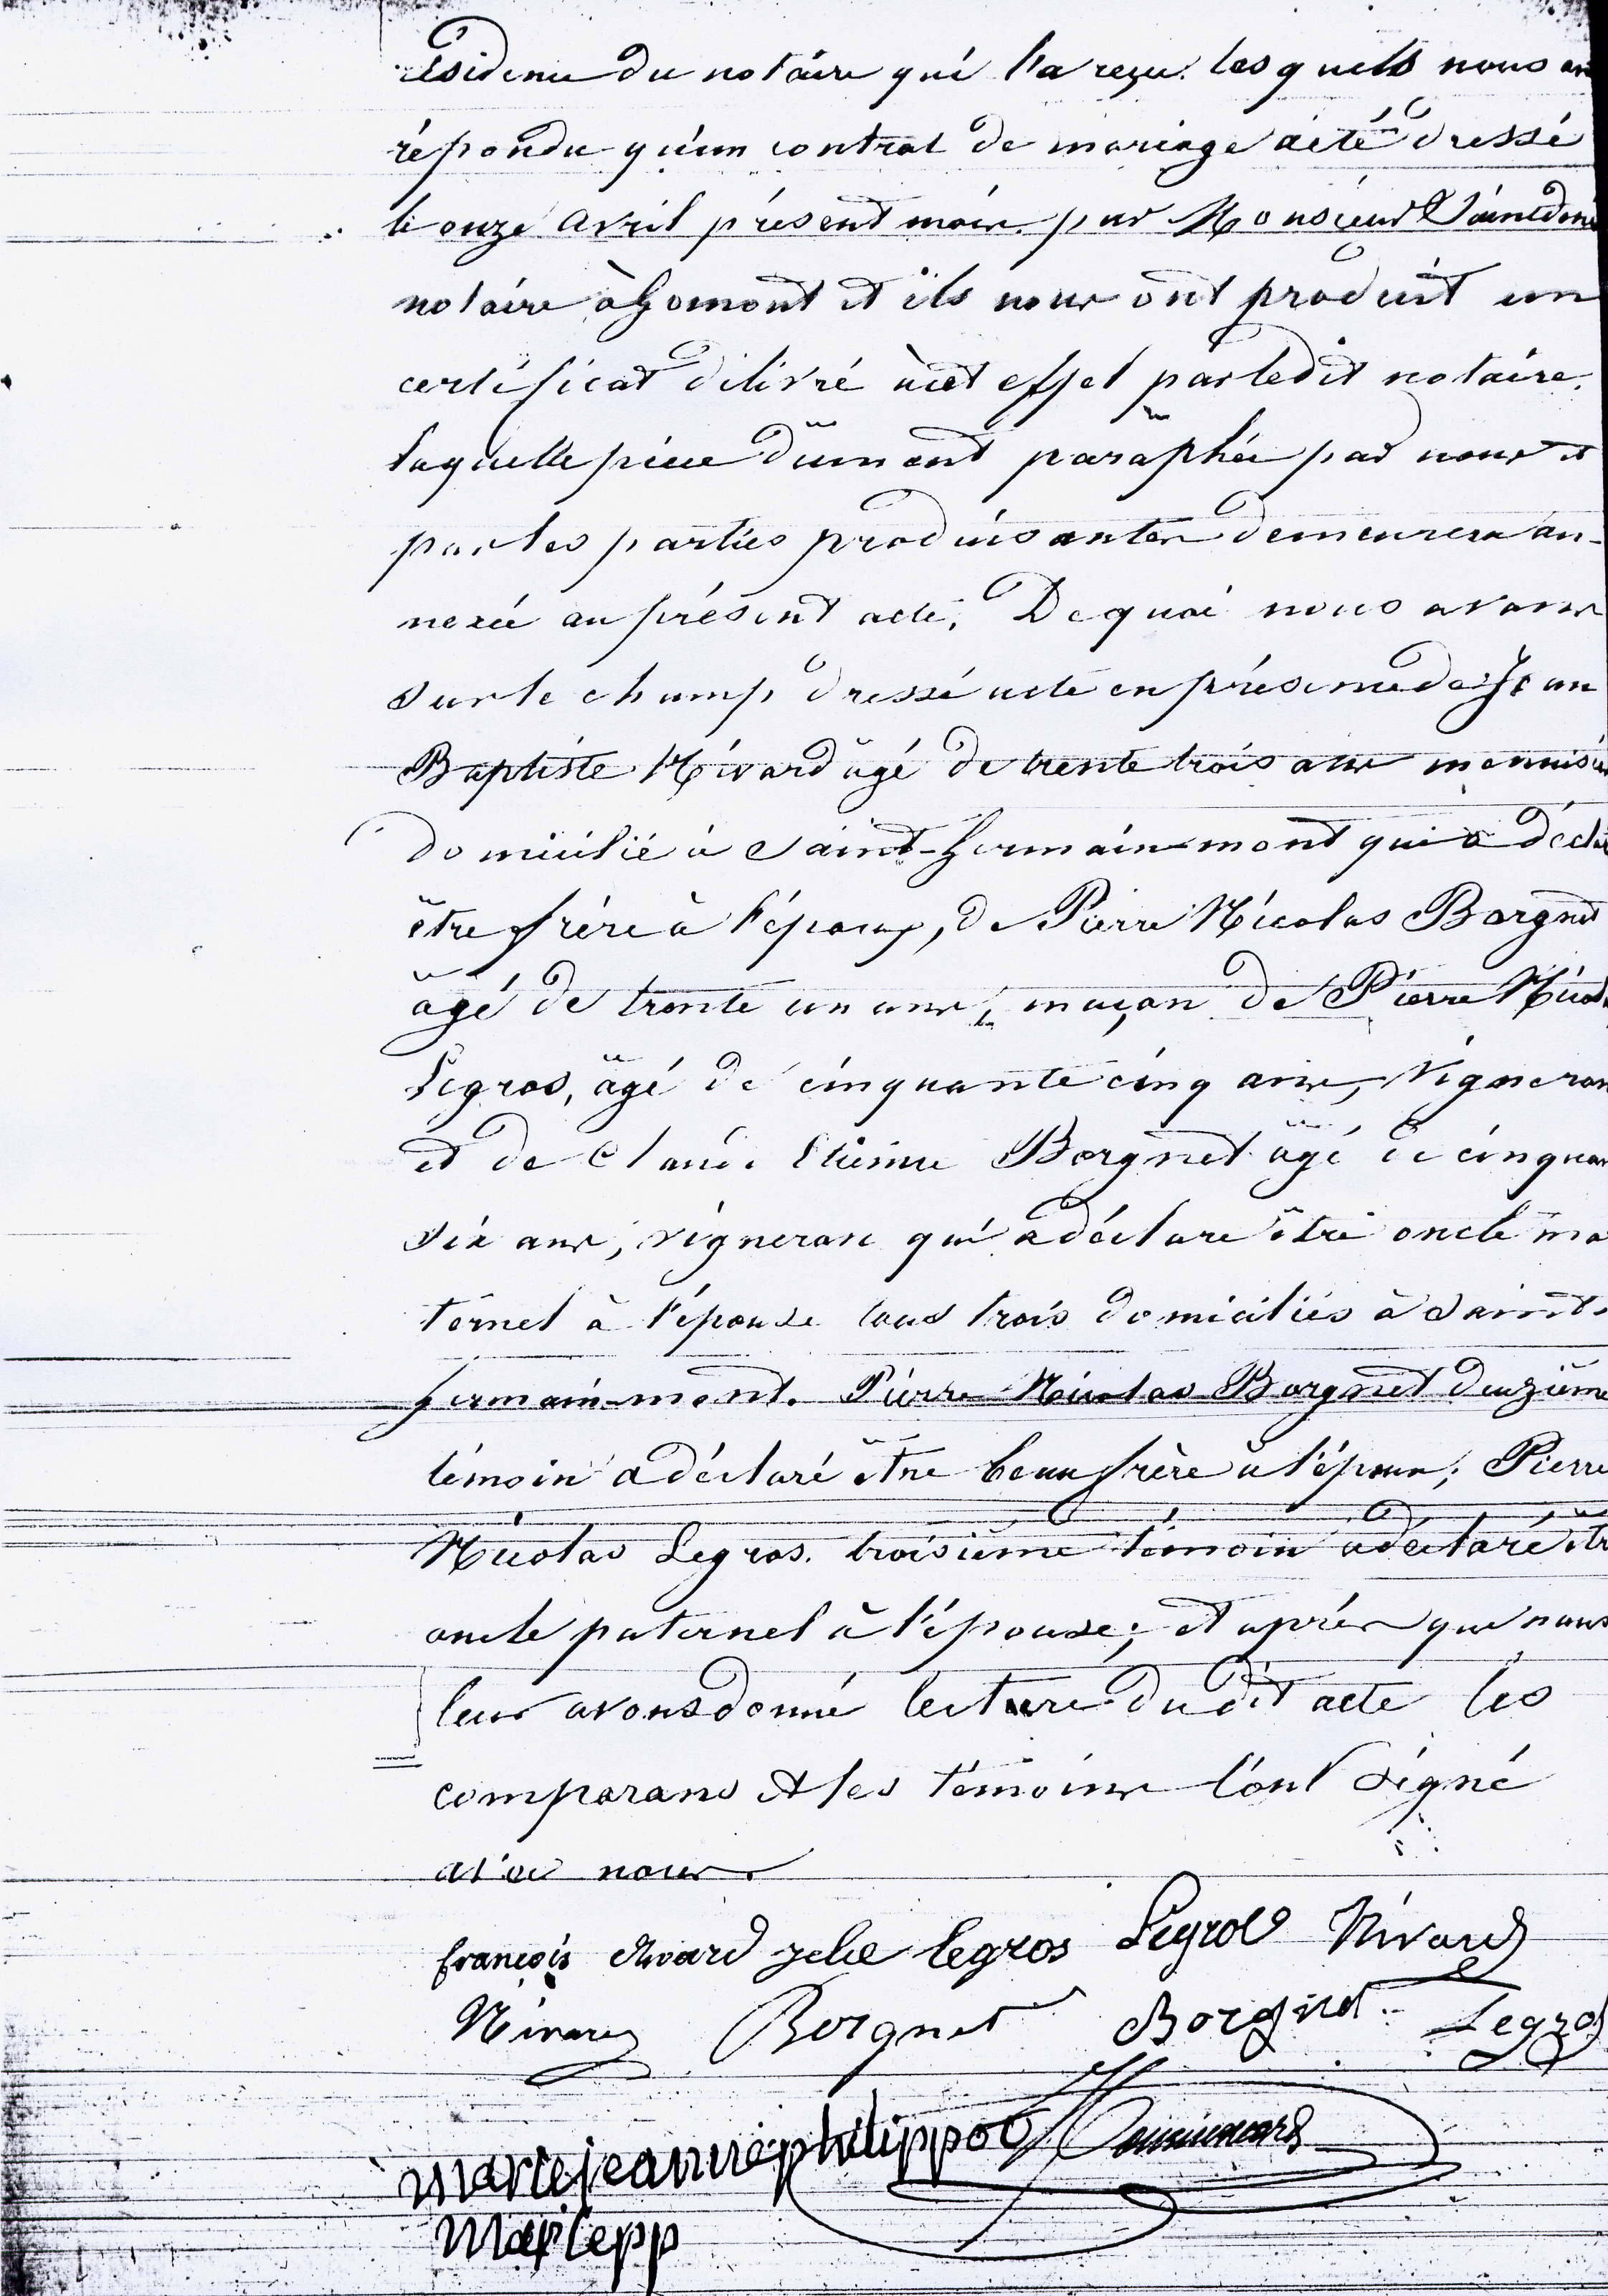 résidence du notaire qui l'a reçu. lesquels nous on
répondu qu'un contrat de mariage a été dressé
le onze avril présent mois par Monsieur
notaire à Gomont et ils nous ont produit un
certificat délivré à cet effet par ledit notaire.
laquelle pièce dûment paraphée par nous et
par les parties produisantes demeurera an-
nexée au présent acte. De quoi nous avons
sur le champ dressé acte en présence de Jean
Baptiste Nivard âgé de trente trois ans menuisier
domicilié à Saint-Germainmont qui a décla
être frère à l'époux, de Pierre Nicolas Borgnet
âgé de trente un ans, maçon de Pierre Nicol
Legros, âgé de cinquante cinq ans, vigneron
et de Claude Etienne Borgnet âgé de cinquan
six ans, vigneron qui a déclaré être oncle ma
ternel à l'épouse tous trois domiciliés à Saint-
germain-mont. Pierre Nicolas Borgnet deuzième
témoin a déclaré être beau frère à l'époux; Pierre
Nicolas Legros. troisième témoin a déclaré êtr
oncle paternel à l'épouse; et après que nous
leur avons donné lecture du dit acte les
comparans et les témoins l'ont signé
avec nous.
françois nivard legros Legros Nivard
Nivard Borgnet Borgnet Legros
marie jeanne philippot